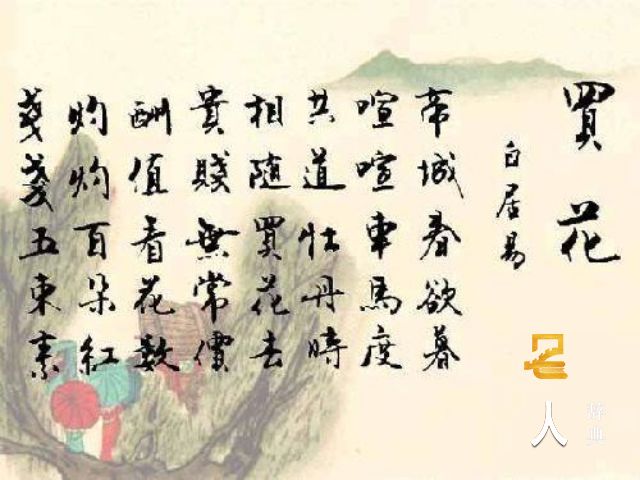 買花
白居易
帝城春欲暮
喧喧車馬度
共道牡丹時
相隨買花去
貴賤無常價
酬值看花數
灼灼百朵紅
戔戔五束素
人
辞典